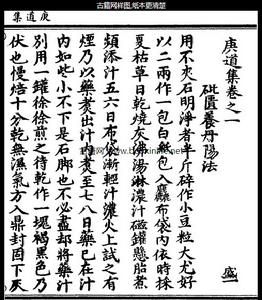 古籍网样图,纸本更清楚
庚道集
庚道集卷之一
砒匱養丹陽法
用不夾石明淨者半斤碎作小豆粒大尤好
以二兩作一包白紙包入麤布袋内依時採
夏枯草日乾燒灰沸湯淋濃汁磁罐懸胎煮
頻添汁五六日布袋漸輕汁濃火上試之有
煙乃以藥煑出汁煑至七八日藥已在汁
内如些小不下是石脚也不必盡却將藥汁
别用一罐徐徐煎之待乾作一塊褐黑色乃
伏也慢焙十分乾無濕氣方入鼎封固下灰